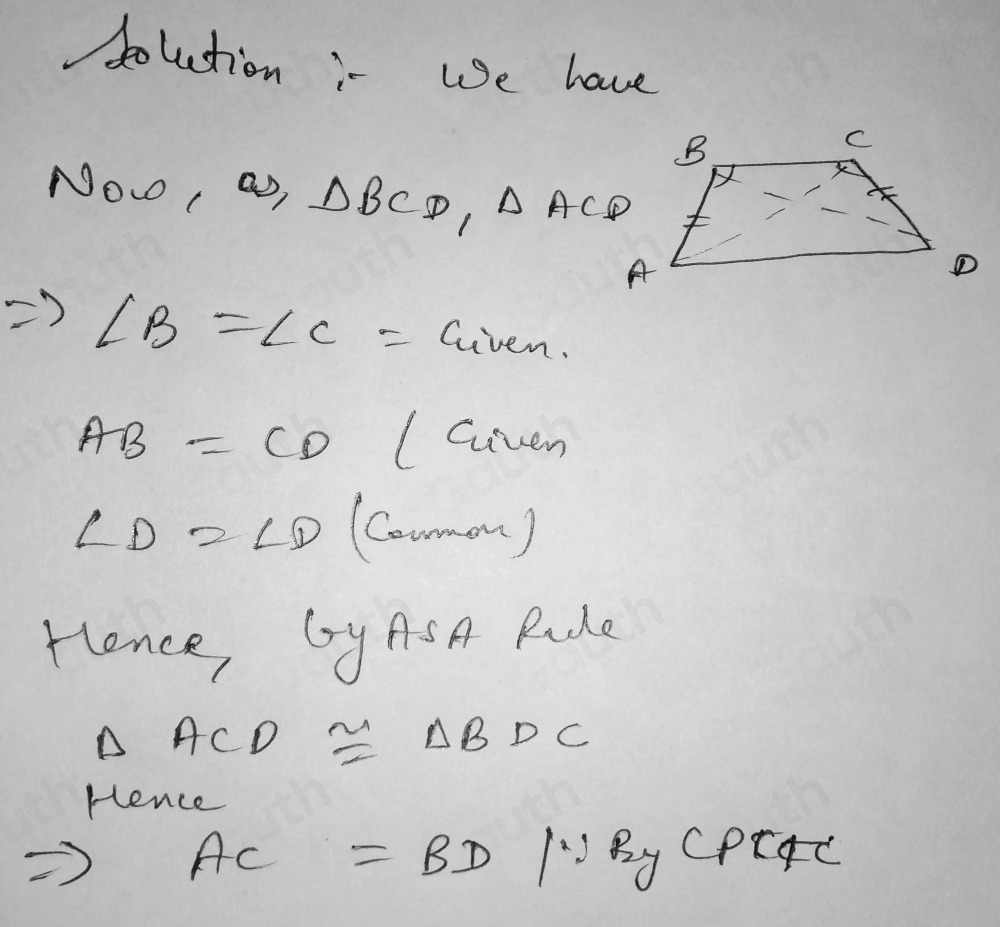 Solution :- We have
Now, as, ΔBCD, Δ ACD
B C
A D
=> ∠B = ∠C = Given.
AB = CD ( Given
∠D = ∠D (Common)
Hence, by ASA Rule
Δ ACD ≅ ΔBDC
Hence
=> AC = BD By CPCTC